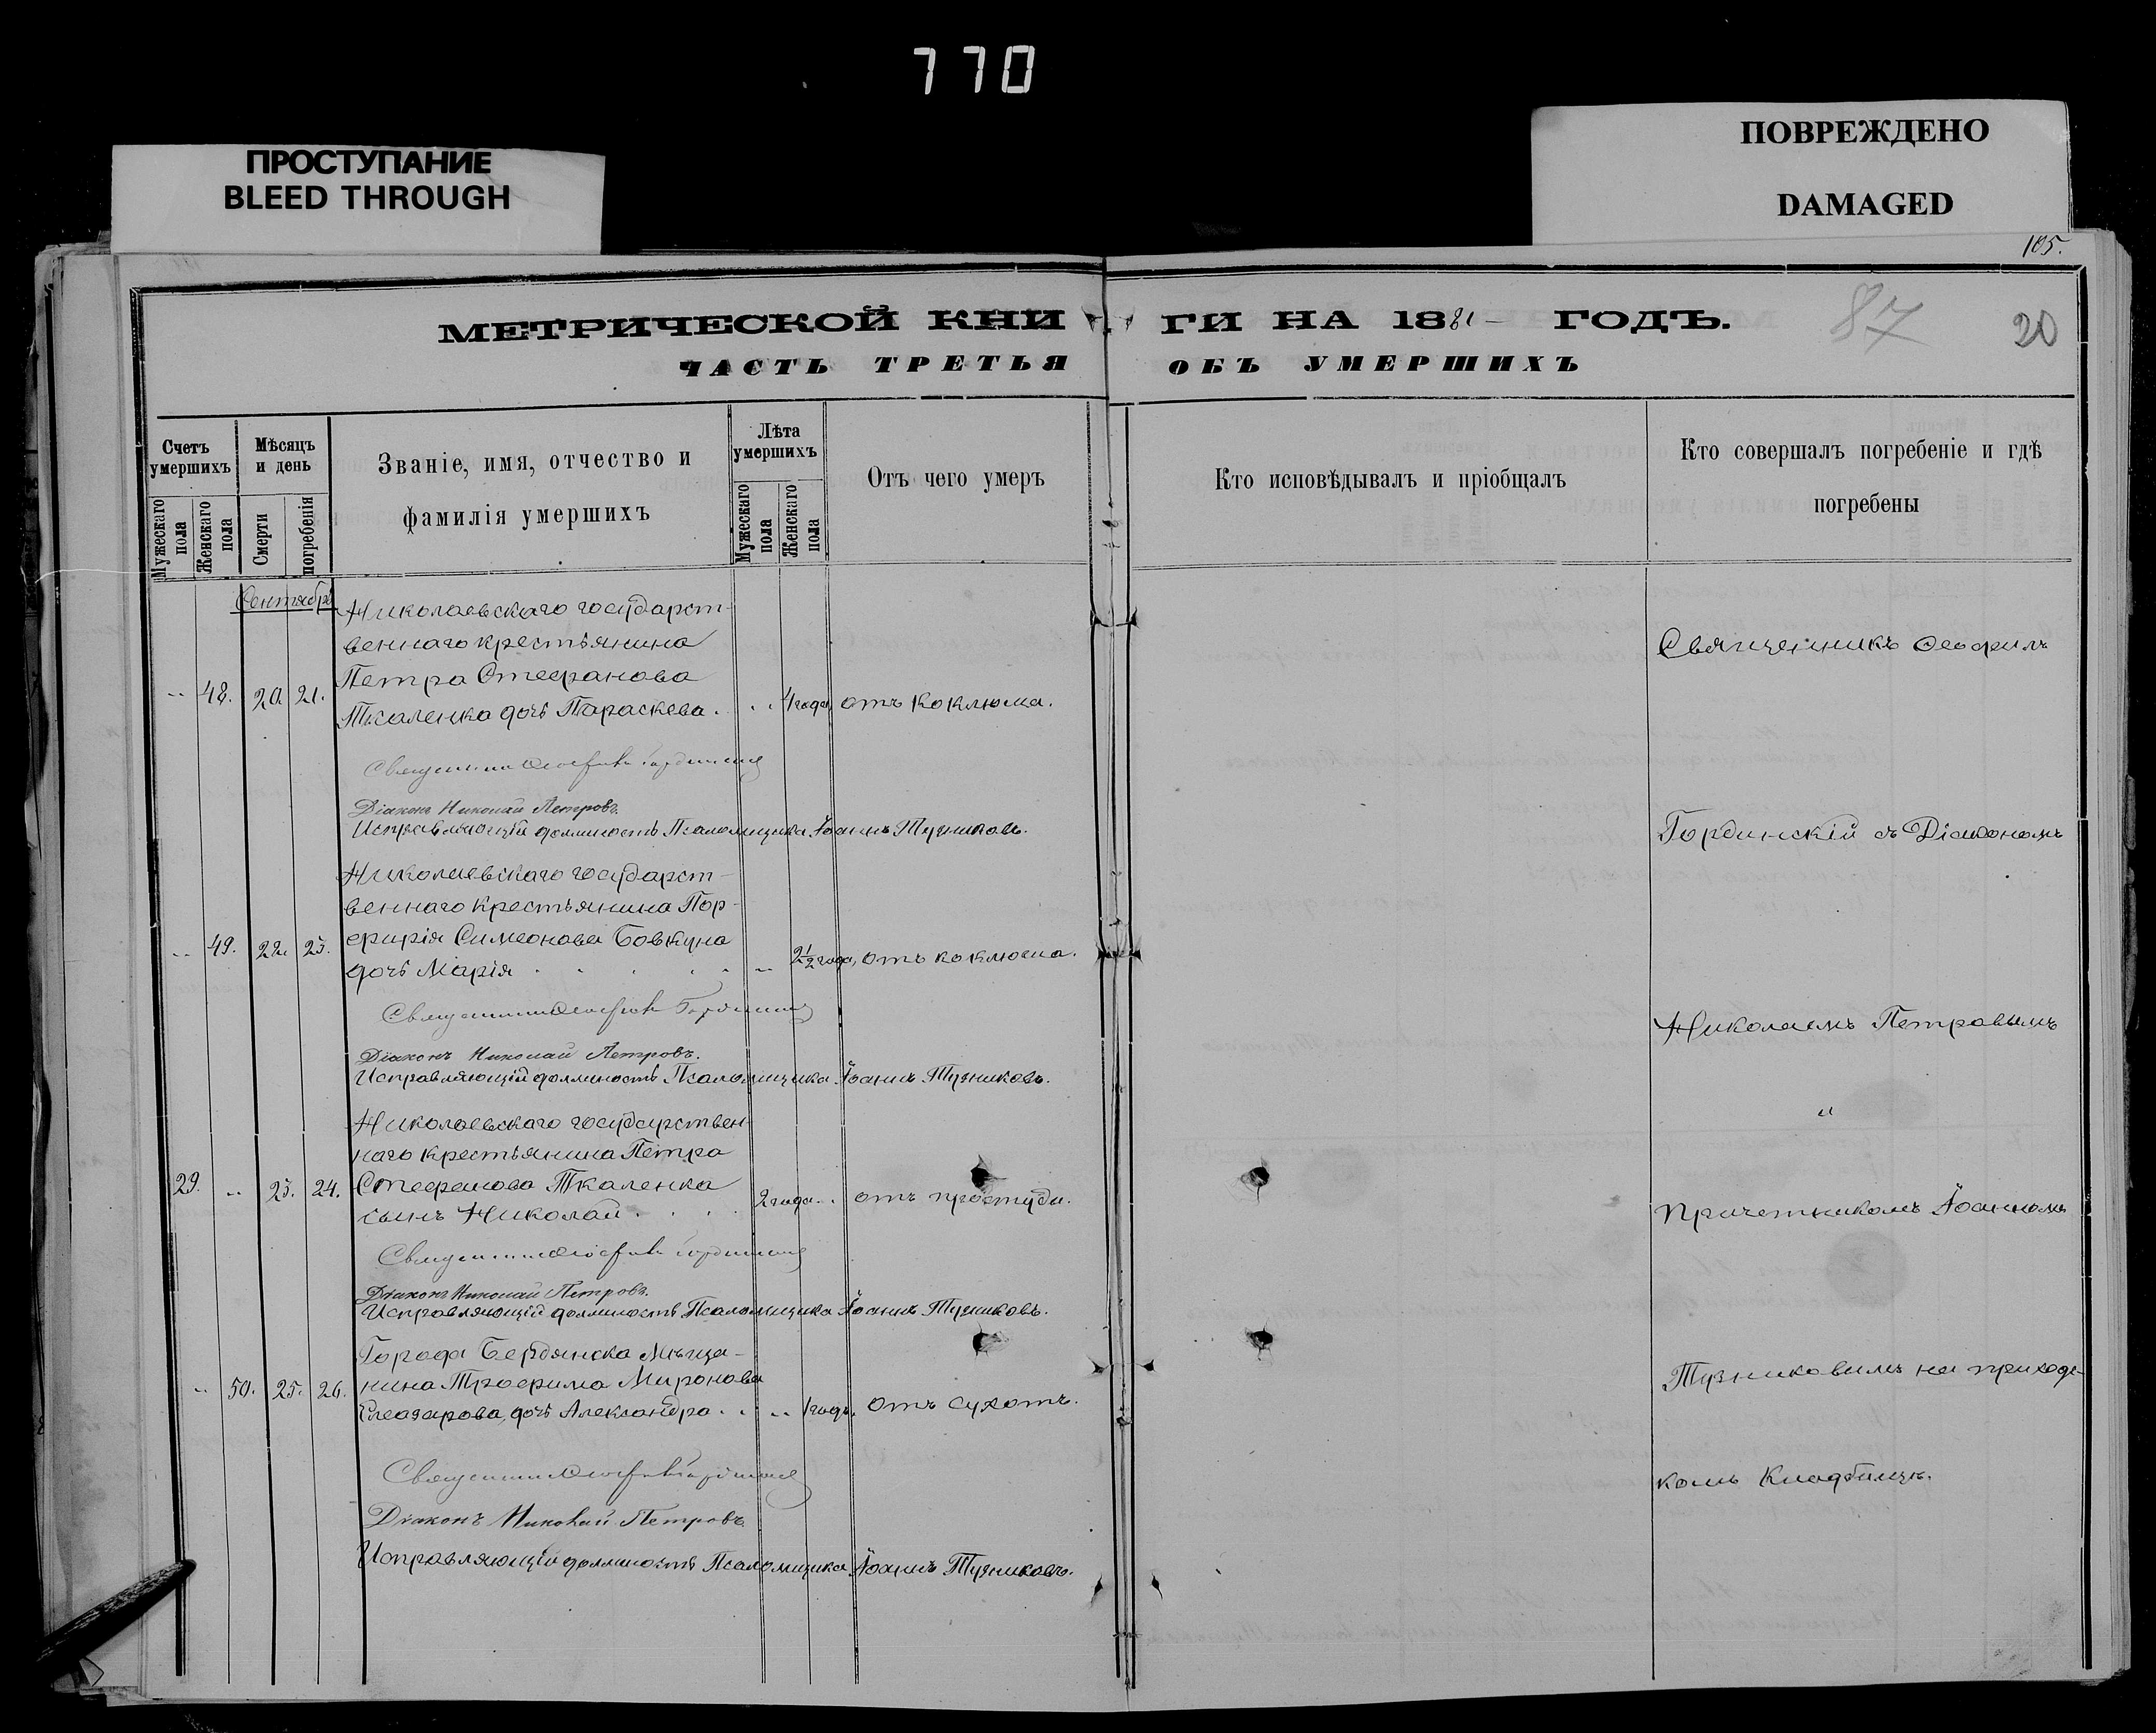 770
ПРОСТУПАНИЕ
BLEED THROUGH
ПОВРЕЖДЕНО
DAMAGED
105.
МЕТРИЧЕСКОЙ КНИ ГИ НА 1881 ГОДЪ.
87
20
ЧАСТЬ ТРЕТЬЯ ОБЪ УМЕРШИХЪ
Счетъ умершихъ
Мужескаго пола
Женскаго пола
Мѣсяцъ и день
Смерти
погребенія
Званіе, имя, отчество и
фамилія умершихъ
Лѣта умершихъ
Мужескаго пола
Женскаго пола
Отъ чего умеръ
Кто исповѣдывалъ и пріобщалъ
Кто совершалъ погребеніе и гдѣ
погребены
Сентябрь
Николаевскаго государст-
веннаго крестьянина
Петра Стефанова
48. 20. 21. Ткаленка дочь Параскева. 4 года, отъ коклюша.
Священникъ Ѳеофилъ Гординскій
Діаконъ Николай Петровъ.
Исправляющій должность Псаломщика Іоаннъ Тузниковъ.
Николаевскаго государст-
веннаго крестьянина Пор-
49. 22. 23. фирія Симеонова Бовкуна
дочь Марія 2½ года, отъ коклюша.
Священникъ Ѳеофилъ Гординскій
Діаконъ Николай Петровъ.
Исправляющій должность Псаломщика Іоаннъ Тузниковъ.
Николаевскаго государствен-
наго крестьянина Петра
29. 23. 24. Стефанова Ткаленка
сынъ Николай 2 года. отъ простуды.
Священникъ Ѳеофилъ Гординскій
Діаконъ Николай Петровъ.
Исправляющій должность Псаломщика Іоаннъ Тузниковъ.
Города Бердянска Мѣща-
50. 25. 26. нина Трофима Миронова
Елеазарова, дочь Александра 1 годъ. отъ сухотъ.
Священникъ Ѳеофилъ Гординскій
Діаконъ Николай Петровъ
Исправляющій должность Псаломщика Іоаннъ Тузниковъ.
Священникъ Ѳеофилъ
Гординскій съ Діакономъ
Николаемъ Петровымъ
и
Причетникомъ Іоанномъ
Тузниковымъ на приходс-
комъ Кладбищѣ.